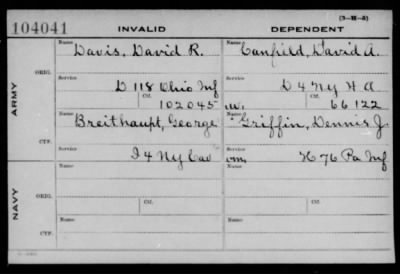 (3—H—5)
104041 INVALID DEPENDENT
Name Davis, David R. Name Canfield, David A.
ARMY
ORIG.
Service D 118 Ohio Inf Service D 4 NY H A
Ctf. 102045 W. Ctf. 66122
Name Breithaupt, George Name Griffin, Dennis J.
CTF.
Service I 4 NY Cav Service m. H 76 Pa Inf
NAVY
Name Name
ORIG.
Service Service
Ctf. Ctf.
Name Name
CTF.
Service Service